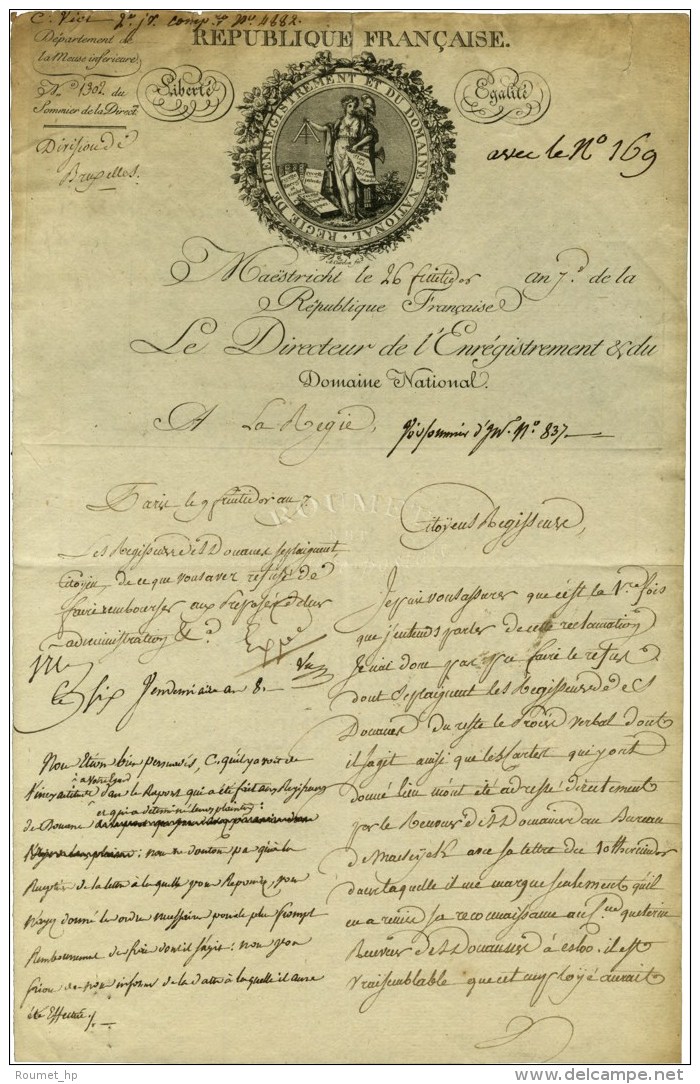 Nº 4882.
REPUBLIQUE FRANÇAISE.
Département de
la Meuse inférieure
Nº 1302 du
Sommier de la Direct.
Liberté
Egalité
REGIE DE L'ENREGISTREMENT ET DU DOMAINE NATIONAL
Division de
Bruxelles.
avec le Nº 169
Maëstricht le 26 an 7e. de la
République Française
Le Directeur de l'Enrégistrement & du
Domaine National.
A La Regie,
Nº 837
Paris le 9 fructidor an 7
ROUMET
Citoyens Regisseurs,
Les Regisseurs des Douanes se plaignent,
Citoyen, de ce que vous avez refusé de
faire rembourser aux Préposés de leur
administration &a.
Je puis vous assurer que c'est la 1re fois
que j'entends parler de cette reclamation
Je n'ai donc pas pu faire le refus
dont se plaignent les Regisseurs des
Douanes du reste le Procès verbal dont
il s'agit ainsi que les Cartes qui y ont
donné lieu m'ont été adressé directement
par le Receveur des Domaines au Bureau
de Maeseyck avec sa lettre du 10
dans laquelle il me marque seulement qu'il
en a remis sa reconnaissance au
Receveur des Douanes à esloo. il est
vraisemblable que cet employé aurait
Ce six Vendemiaire an 8.
Nous etions bien persuadés, C. qu'il y avoit de
l'inexactitude dans le Raport qui a été fait aux Regisseurs
à votre égard
des Douanes
et qui a determiné leurs plaintes :
nous ne doutons pas qu'à la
Reception de la lettre à laquelle vous Repondez, vous
n'ayez donné les ordres necessaires pour le plus prompt
Remboursement des frais dont il s'agit : nous vous
prions de nous informer de la date à laquelle il aura
été Effectué.
Roumet_hp
delcampe.net